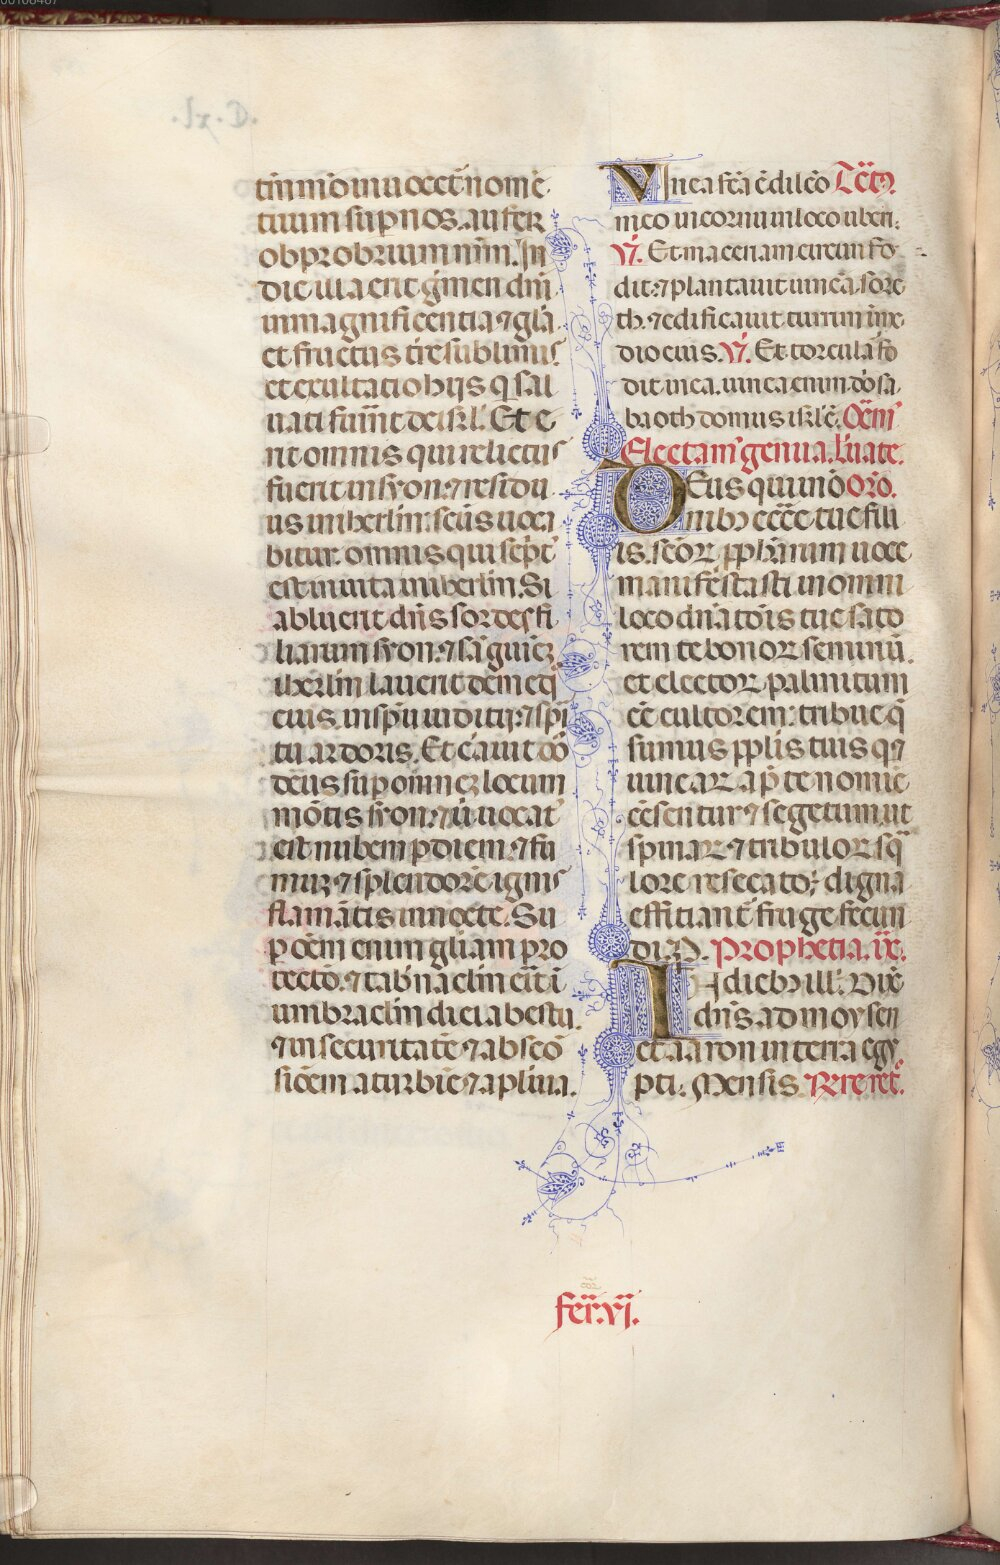 tm̄mō inuocet͛ nomē
tuum sup̱ nos. aufer
obprobrium nr̄m. In
die illa erit g̾men dn̄i
in magnificentia ⁊ glā.
et fructus tr̄e sublimis
et exultatio hijs q̾ sal
uati fuerīt de isrl̄. Et e
rit omnis qui relictus
fuerit in syon: ⁊ residu
us in ihrl̄m: sc̄us uoca
bitur. omnis qui sc̾pt͛
est in uita in ihrl̄m. Si
abluerit dn̄s sordes fi
liarum syon: ⁊ sāguiēȝ
ihrl̄m lauerit de mediō
eius. in spū iudicij: ⁊ spi
tu ardoris. Et c̾auit dō
deus sup̱ omneȝ locum
mōtis syon: ⁊ ubi uocat͛
est nubem p̱ diem: ⁊ fu
muȝ ⁊ splendorē ignis
flammātis in nocte. Su
p̱ oēm enim gl̄iam pro
tectio. ⁊ tab̾naclm̄ erit ī
umbraclm̄ diei ab estu.
⁊ in securitatē ⁊ abscō
sioem a turbie ⁊ a pluuia.
Vinea fc̄a ē dilc̄o Tc̄tꝰ
meo in cornu in loco uberi.
V̾. Et maceriam circunfo
dit: ⁊ plantauit uineā sore
ch. ⁊ edificauit turrim in me
dio eius. V̾. Et torcular fo
dit in ea. uinea enim dn̄i sa
baoth domus isrl̄ ē. Orēm
Flectam̾ genua. leuate.
Deus qui ī om̄ Orō.
nibꝫ ecc̄e tue fili
is. sc̄oꝝ pp̱hetarum uoce
manifestasti in omni
loco dn̄atiōis tue sato
rem te bonoꝝ seminū.
et electoꝝ palmitum
eē cultorem: tribue q̄
sumus pp̱lis tuis q̾ ⁊
uineaꝝ ap̱ te nomīe
cēsentur ⁊ segetum: ut
spinaꝝ ⁊ tribuloꝝ sq̾
lore resecato: digna
efficiant͛ fruge fecun
di. P̱. Prophetia. ix.
In diebꝫ ill̾: Dix̄
dn̄s ad moysen
et aaron in terra egy
pti: Mensis. Req̾re ret͛.
fer̄. vj.